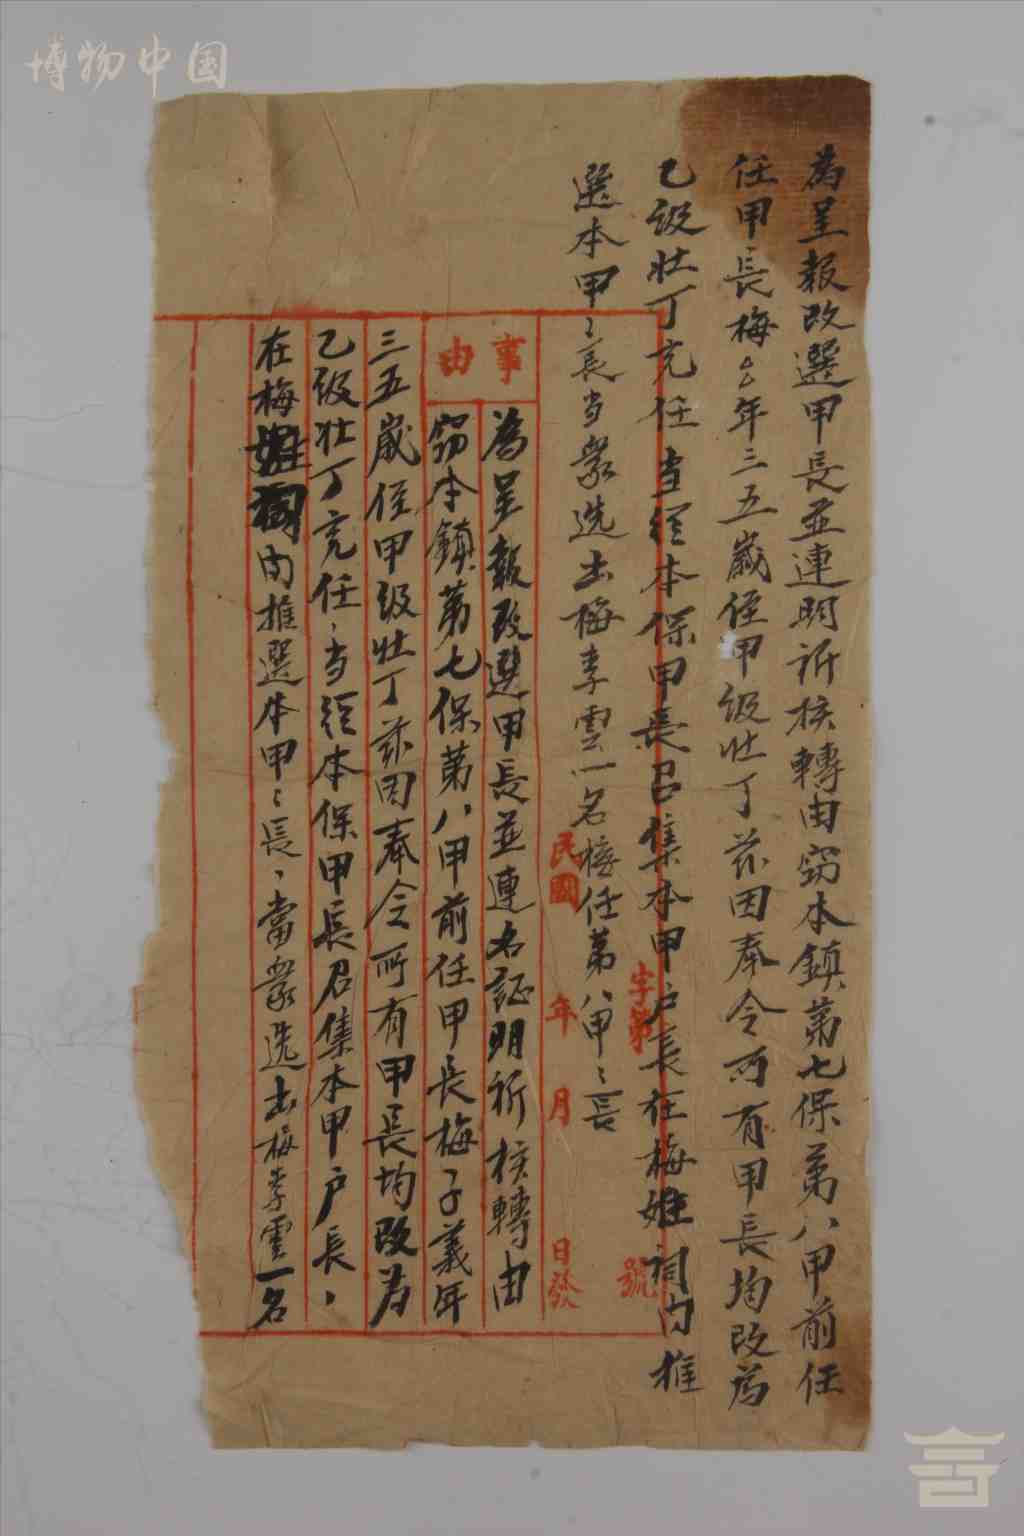 博物中国
為呈報改選甲長並連明祈核轉由窃本鎮第七保第八甲前任
任甲長梅年三五歲任甲级壮丁兹因奉令所有甲長均改為
乙級壮丁充任当經本保甲長召集本甲户長在梅姓祠内推
選本甲〻長当眾选出梅李雲一名接任第八甲〻長
字第 號
民國 年 月 日發
事由
為呈報改選甲長並連名証明祈核轉由
窃本鎮第七保第八甲前任甲長梅子義年
三五歲任甲级壮丁兹因奉令所有甲長均改为
乙级壮丁充任、当經本保甲長召集本甲户長、
在梅姓祠内推選本甲〻長、當眾选出梅李雲一名